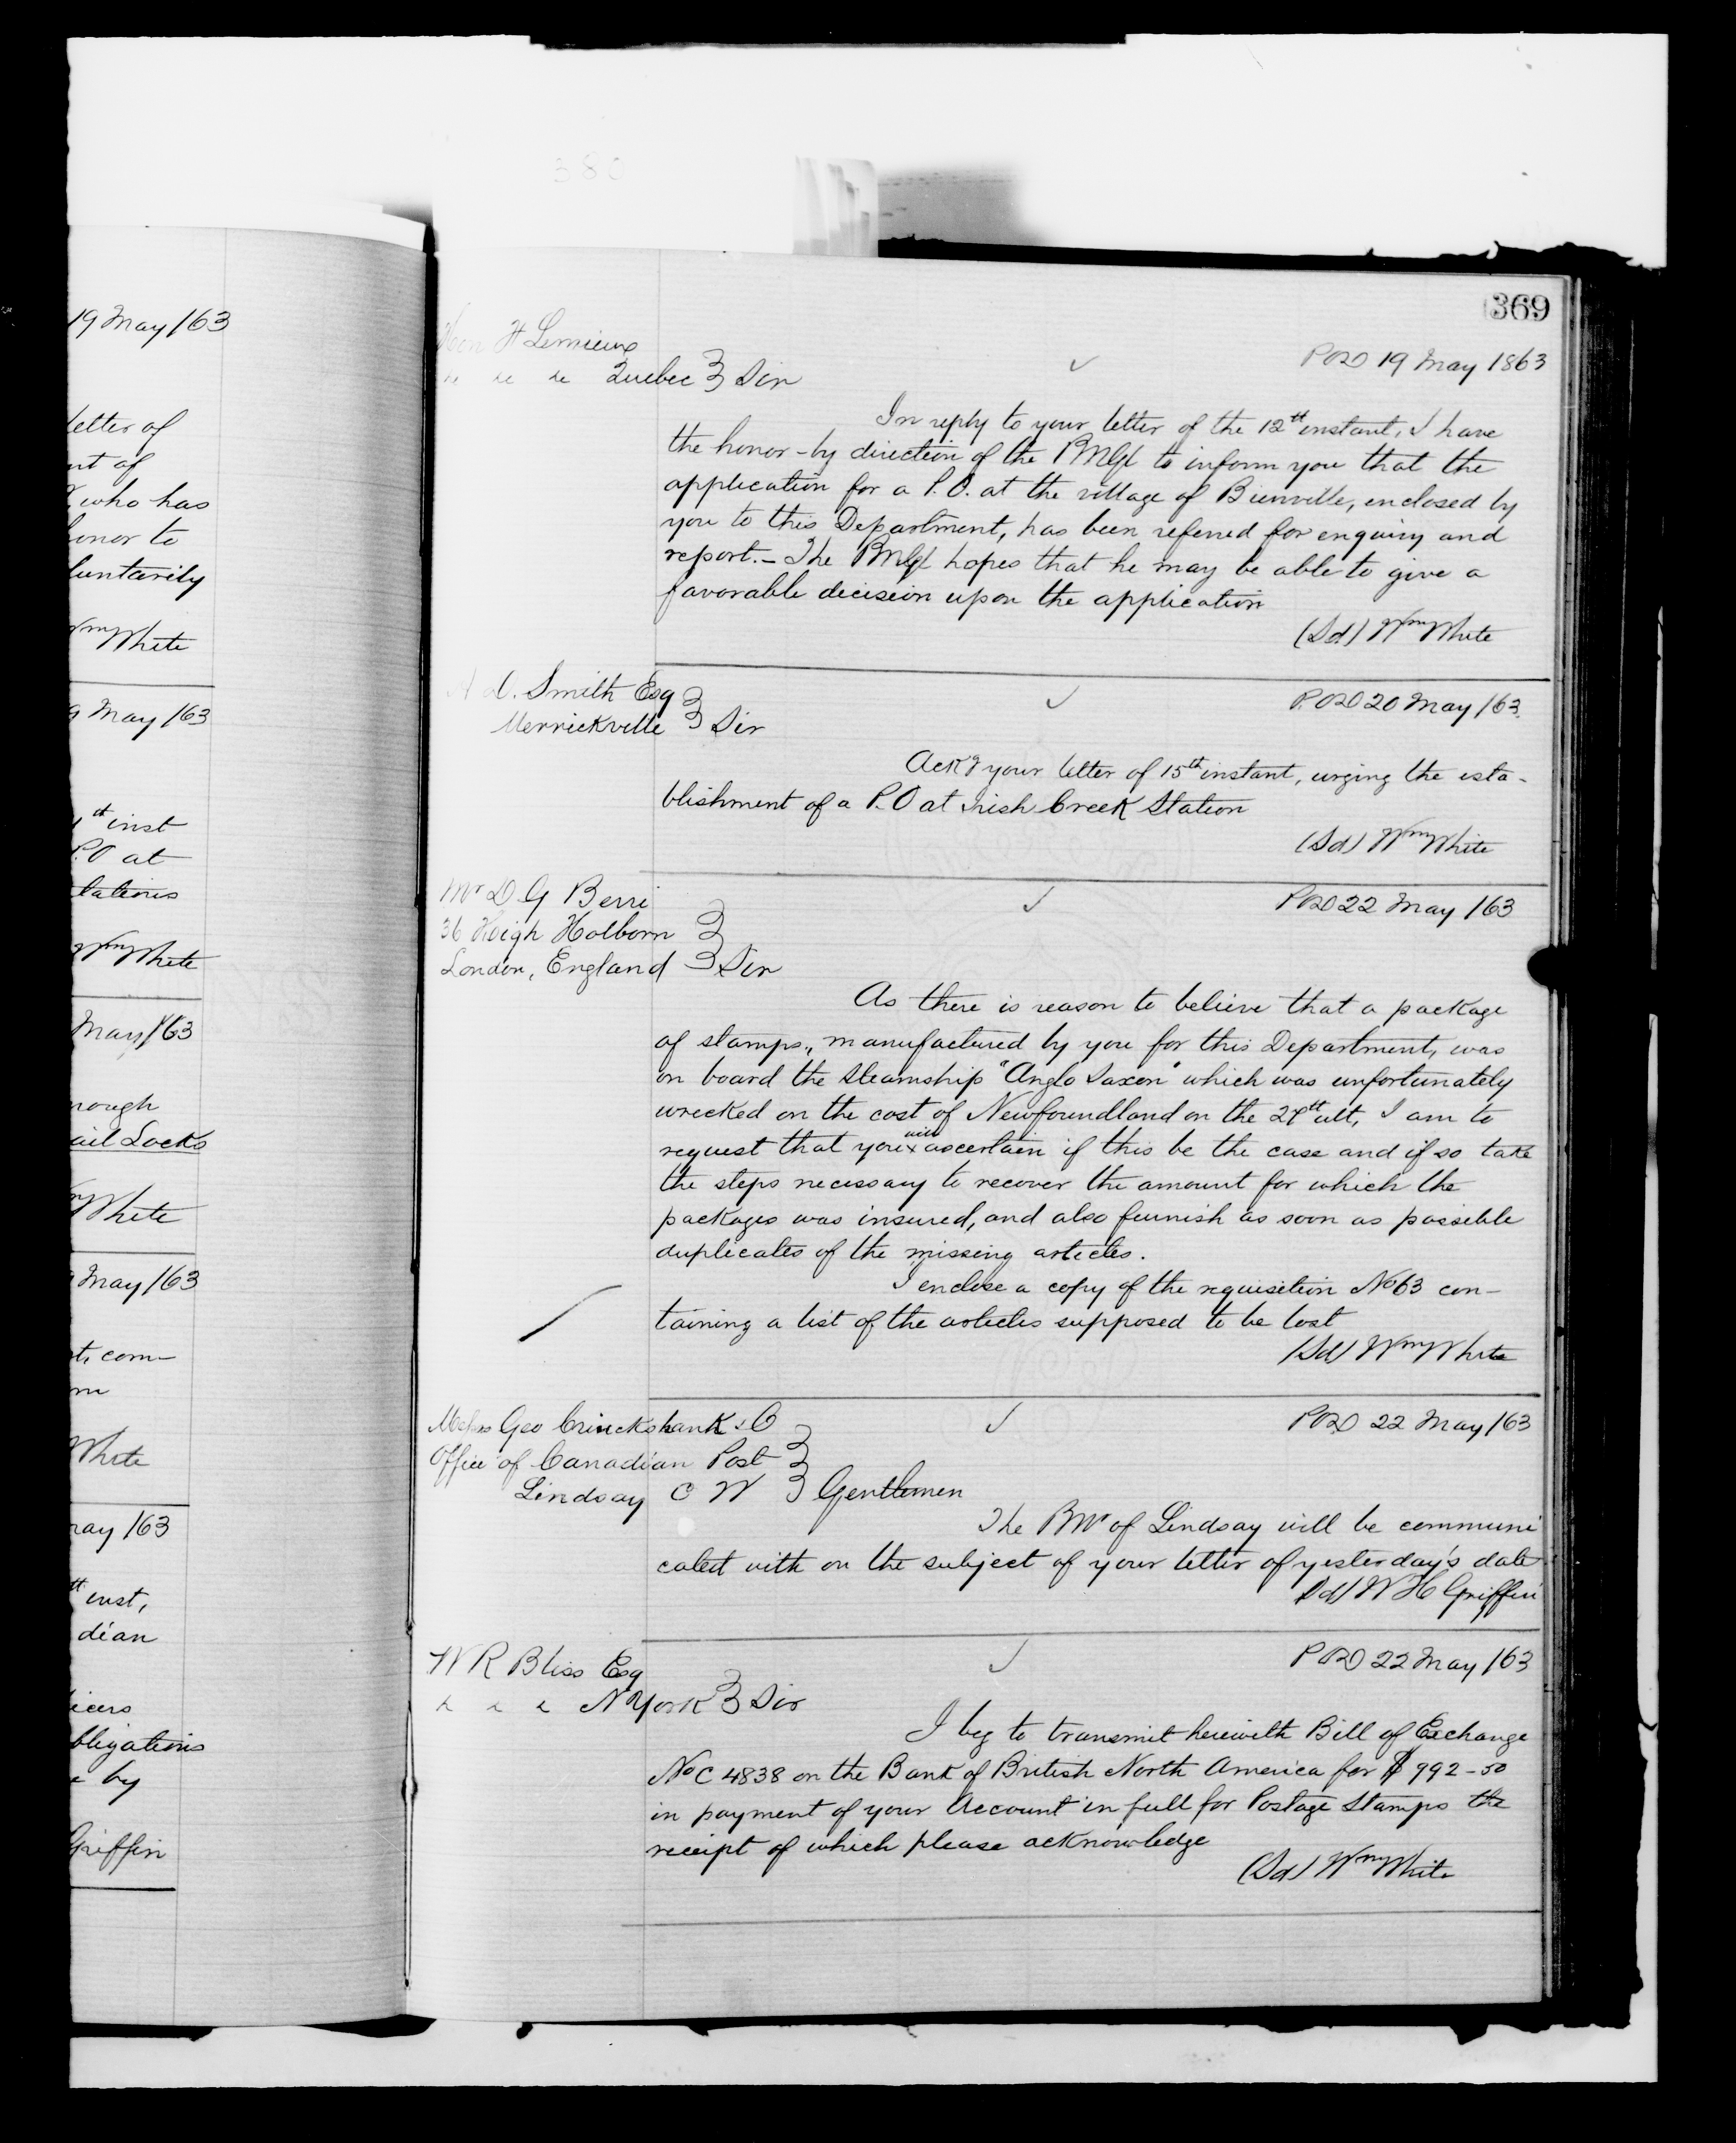 380
19 May /63
letter of
nt of
who has
honor to
luntarily
Wm White
9 May /63
th inst
P.O at
lations
Wm White
May /63
nough
ail Locks
White
May /63
t, com-
me
White
ay /63
th inst,
dian
icers
bligations
e by
Griffin
369
Hon F Lemieux
&c &c &c Quebec } Sir
POD 19 May 1863
In reply to your letter of the 12th instant, I have
the honor - by direction of the PMGl to inform you that the
application for a P.O. at the village of Bienville, enclosed by
you to this Department, has been referred for enquiry and
report. - The PMGl hopes that he may be able to give a
favorable decision upon the application
(Sd) Wm White
D. Smith Esq
Merrickville } Sir
P.OD 20 May /63.
Ackg your letter of 15th instant, urging the esta-
blishment of a P.O at Irish Creek Station
(Sd) Wm White
Mr D G Berri
36 High Holborn
London, England } Sir
POD 22 May /63
As there is reason to believe that a package
of stamps, manufactured by you for this Department, was
on board the Steamship "Anglo Saxon" which was unfortunately
wrecked on the cost of Newfoundland on the 27th ult, I am to
request that you will ascertain if this be the case and if so take
the steps necessary to recover the amount for which the
packages was insured, and also furnish as soon as possible
duplicates of the missing articles.
I enclose a copy of the requisition No 63 con-
taining a list of the articles supposed to be lost
(Sd) Wm White
Messrs Geo Crinckshank & C
Office of Canadian Post
Lindsay C W } Gentlemen
POD 22 May /63
The PMr of Lindsay will be communi
cated with on the subject of your letter of yesterday's date
Sd) W H Griffin
W R Bliss Esq
&c &c &c N York } Sir
POD 22 May /63
I beg to transmit herewith Bill of Exchange
No C 4838 on the Bank of British North America for $ 992-50
in payment of your Account in full for Postage Stamps the
receipt of which please acknowledge
(Sd) Wm White